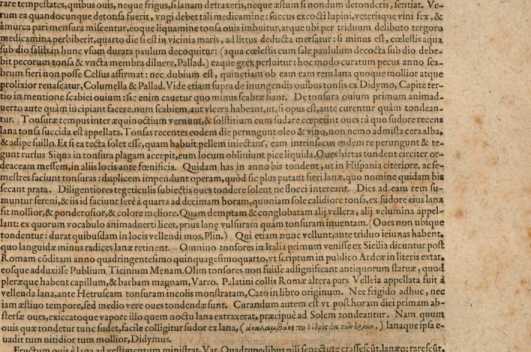 rare tempestates, quibus ouis, neque frigus, si lanam detraxeris, neque æstum si nondum detonderis, sentiat. Ve-
rum ea quandocunque detonsa fuerit, vngi debet tali medicamine: succus excocti lupini, veterisque vini fex, &
amurca pari mensura miscentur, eoque liquamine tonsa ouis imbuitur, atque vbi per triduum delibuto tergora
medicamina perbiberit, quarto die si est in vicinia maris, ad littus deducta mersatur: si minus est, cœlestis aqua
sub dio salibus in hunc vsum durata paulum decoquitur: (aqua cœlestis cum sale paululum decocta sub dio debe-
bit pecorum tonsa & vncta membra diluere, Pallad.) eaque grex perluitur: hoc modo curatum pecus anno sca-
brum fieri non posse Celsus affirmat: nec dubium est, quin etiam ob eam rem lana quoque mollior atque
prolixior renascatur, Columella & Pallad. Vide etiam supra de inungendis ouibus tonsis ex Didymo, Capite ter-
tio in mentione scabiei ouium: sic enim caietur quo minus scabræ fiant. De tonsura ouium primum animad-
uerto ante quàm incipiant facere, num scabiem, aut vlcera habeant, ut, si opus est, ante curentur quàm tondean-
tur. Tonsuræ tempus inter æquinoctium vernum, & solstitium cum sudare cœperint oues: à quo sudore recens
lana tonsa succida est appellata. Tonsas recentes eodem die perungunt oleo & vino, non nemo admista cera alba,
& adipe suillo. Et si ea tecta solet esse, quam habuit pellem iniectam, eam intrinsecus eadem re perungunt & te-
gunt rursus Si qua in tonsura plagam accepit, eum locum obliniunt pice liquida. Oues hirtas tondent circiter or-
deaceam messem, in aliis locis ante fœniscia. Quidam has in anno bis tondent, ut in Hispania citeriore, ac se-
mestres faciunt tonsuras: duplicem impendunt operam, quòd sic plus putant fieri lanæ, quo nomine quidam bis
secant prata. Diligentiores tegeticulis subiectis oues tondere solent ne flocci intereant. Dies ad eam rem su-
muntur sereni, & iis id faciunt ferè à quarta ad decimam horam, quoniam sole calidiore tonsa, ex sudore eius lana
fit mollior, & ponderosior, & colore meliore. Quam demptam & conglobatam alij vellera, alij velumina appel-
lant: ex quorum vocabulo animaduerti licet, prius lanæ vulsuram quàm tonsuram inuentam. (Oues non vbique
tondentur: durat quibusdam in locis vellendi mos. Plin.) Qui etiam nunc vellunt, ante triduo ieiunas habent,
quo languidæ minus radices lanæ retinent. Omnino tonsores in Italia primum venisse ex Sicilia dicuntur post
Romam côditam anno quadringentesimo quinquagesimoquarto, vt scriptum in publico Ardeæ in literis extat,
eosque adduxisse Publium Ticinium Menam. Olim tonsores non fuisse adsignificant antiquorum statuæ, quod
pleræque habent capillum, & barbam magnam, Varro. Palatini collis Romæ altera pars Velleia appellata fuit à
vellenda lana, ante Hetruscam tonsuram incolis monstratam, Cato in libro originum. Nec frigido adhuc, nec
iam æstiuo tempore, sed medio vere oues tondendæ sunt. Curandum autem est vt post horam diei primam ab-
stersæ oues, exiccatoque vapore illo quem noctu lana extraxerat, præcipuè ad Solem tondeantur. Nam quum
ouis quæ tondetur tunc sudet, facile colligitur sudor ex lana, lanaque ipsa e-
uadit tum nitidior tum mollior, Didymus.